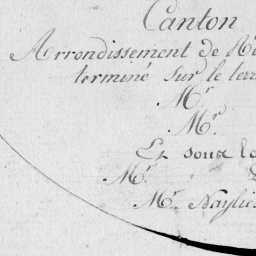 Canton
Arrondissement de
terminé sur le
Mr.
Mr.
Et sous
Mr.
Mr.